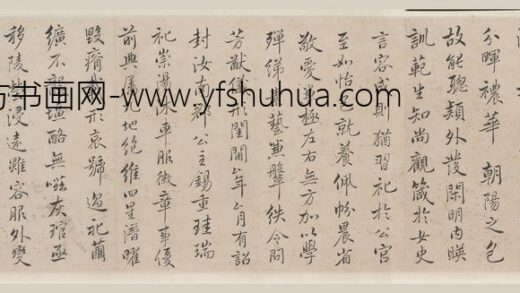 分暉禯華朝陽之色
故能聰穎外發閑明内暎
訓範生知尚觀箴於女史
言容成則猶習礼於公宮
至如怡色就養佩帉晨省
敬愛兼極左右無方加以學
殫綈藝兼鞶紩令問
芳猷儀形閨閫年月有詔
封汝南郡公主錫重珪瑞
礼崇湯沐車服徽章事優
前典屬地絶維四星潛曜
毀瘠形哀號過礼繭
纊不塩酪無嗞灰琯亟
移陵浸遠雖容服外變
方书画网-www.yfshuhua.com